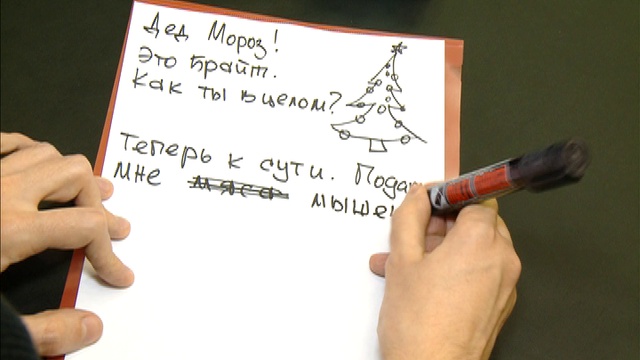 Дед Мороз!
Это Брайт.
Как ты в целом?
Теперь к сути. Пода
мне мяса мыше